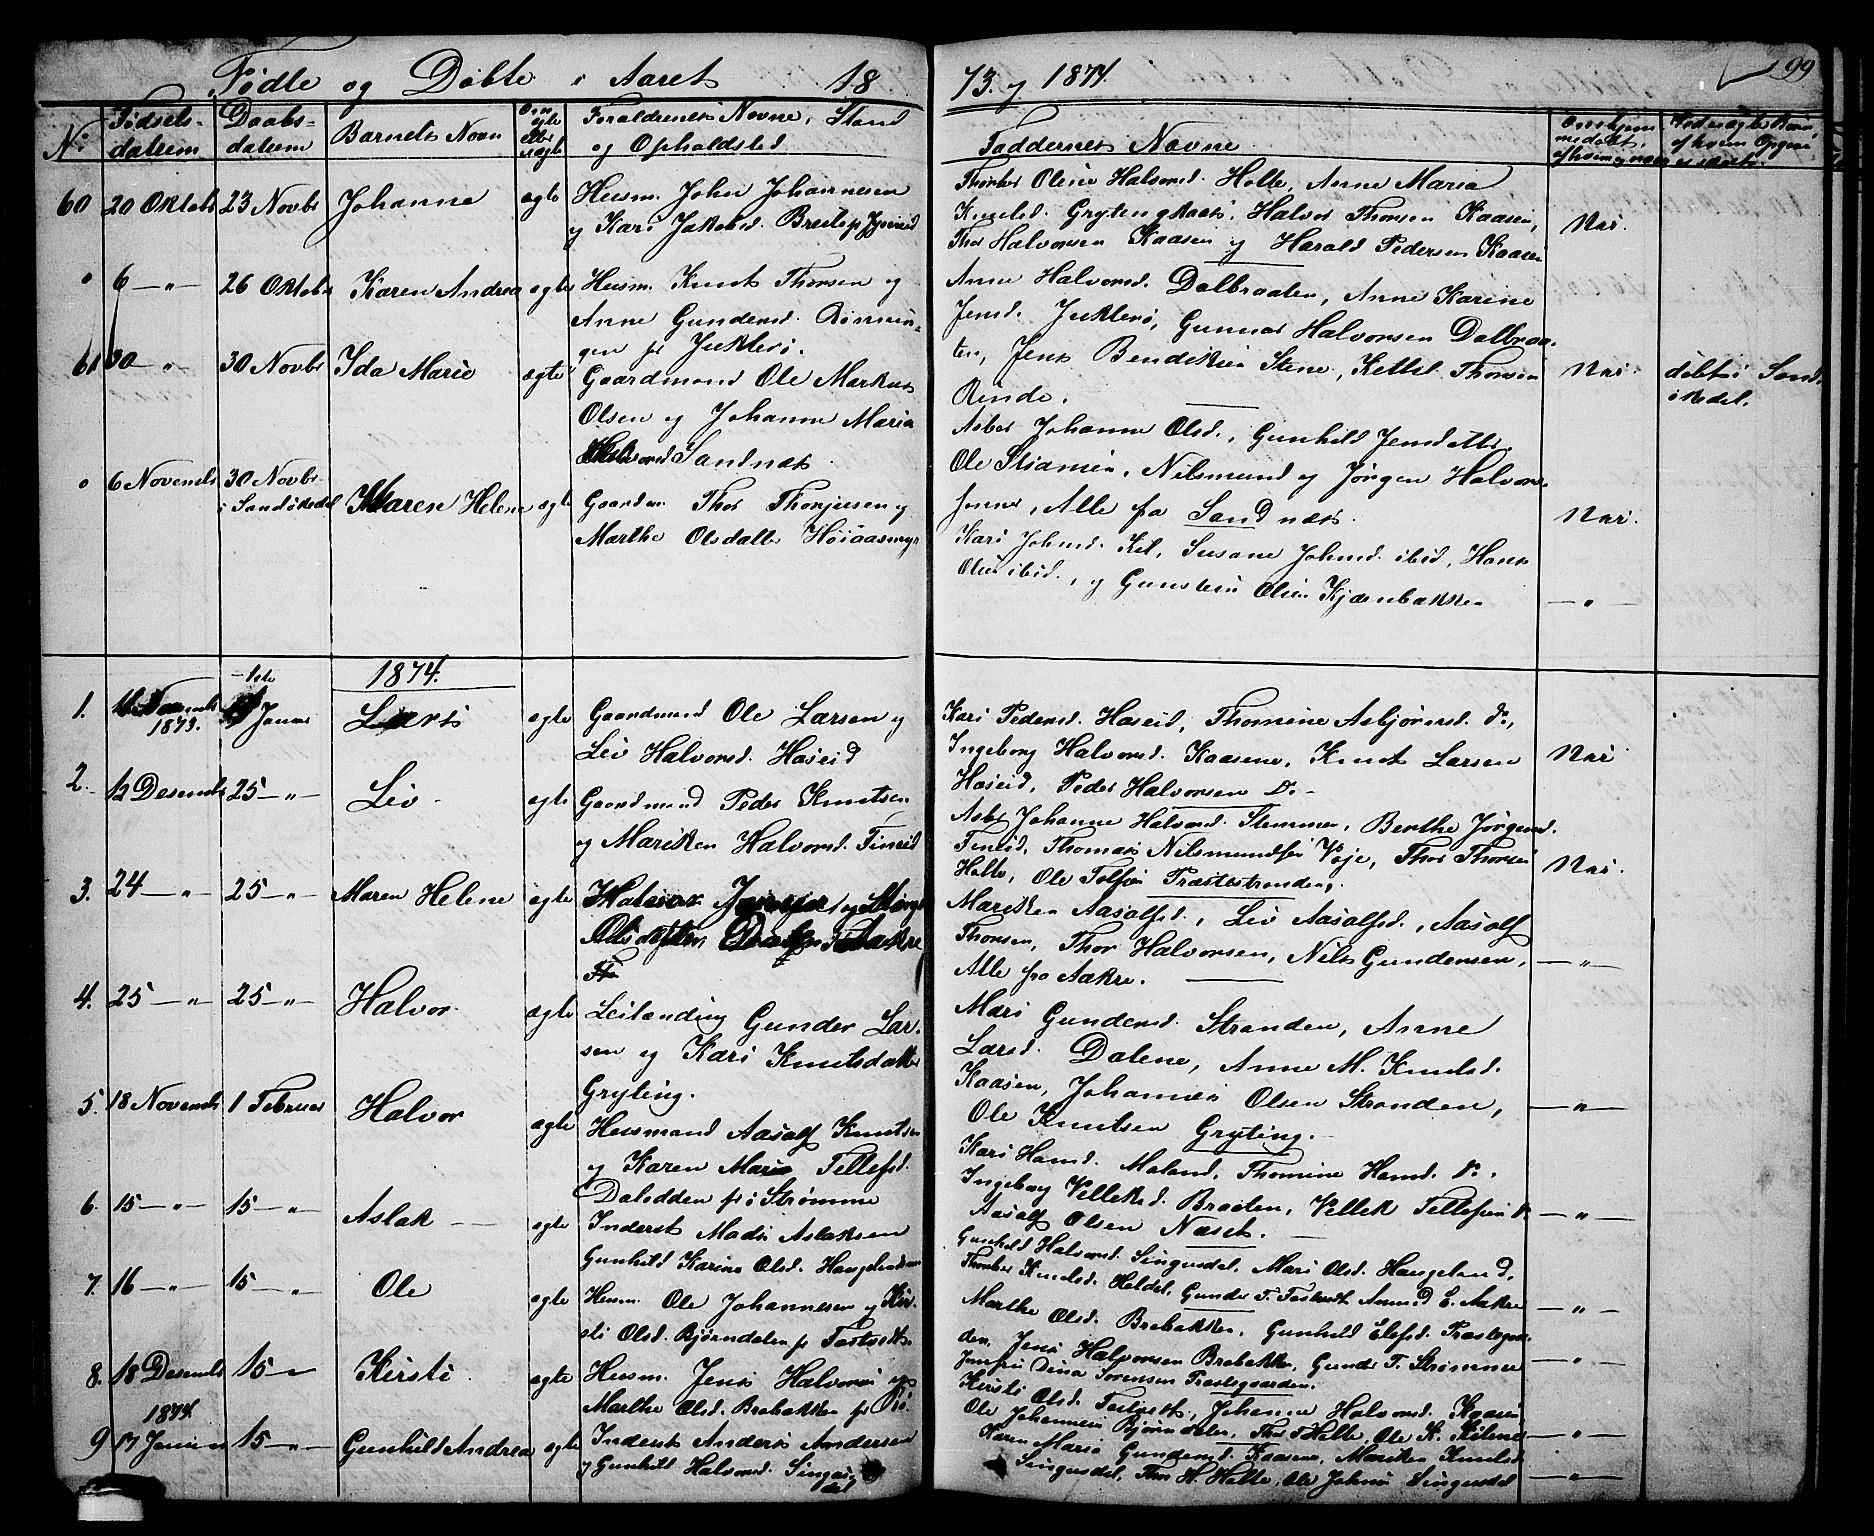 Fødte og Døbte i Aaret 18 73. og 1874. 99
No Fødsels- Daabs- Barnets Navn Om ægte eller uægte Forældrenes Navne, Stand
datum datum og Opholdsted Faddernes Navne
60 20 Oktob 23 Novbr Johanne ægte Husm. John Johannesen
og Kari Jakobsd.
Thorber Oline Halvorsd. Holte, Anne Maria
Knudsd. Grytingsaas, Halvor Thorsen Kaasen,
Thor Halvorsen Kaasen og Harald Pedersen Kaasen
Nei.
0 6 — " — 26 Oktobr Karen Andrea ægte Husm. Knut Thorsen og
Anne Gundersd. Rønnin-
gen fr Jukterø.
Anne Halvorsd. Dalbraaten, Anne Karine
Jensd. Jukterø, Gunnar Halvorsen Dalbraa-
ten, Jens Bendiksen Stene, Kettil Thorsen
Rinde.
Nei. døbt i Sand-
økedal.
61 30 — " 30 Novbr Ida Marie ægte Gaardmand Ole Markus
Olsen og Johanne Maria
Halvorsd Sandnæs.
Asber Johanne Olsd., Gunhild Jensdatter,
Ole Nilsmund og Jørgen Halvor-
senner, Alle fra Sandnæs.
Nei.
0 6 Novemb 30 Novbr
i Sandøkedal Maren Helene ægte Gaardm. Thor Thorjusen og
Marthe Olsdatter Høiaasmyr
Kari Johnsd. Kil, Susane Johnsd. ibid, Hans
Olsen ibid., og Gunstein Olsen Kjdenbakken
— " —
1874.
1. Novemb 1ste Janu Lars ægte Gaardmand Ole Larsen og
1873.
Liv Halvorsd. Haseid
Kari Pedersd. Haseid, Thomine Asbjørnsd. Do,
Ingeborg Halvorsd. Kaasene, Knut Larsen
Haseid, Peder Halvorsen Do
Nei
2. 12 Desemb 25 — " — Liv ægte Gaardmand Peder Knutsen
og Mariken Halvorsd. Finseid
Asber Johanne Halvorsd. Stemmen, Berthe Jørgensd.
Finseid, Thomas Nilsmundsen Veje, Thor Thorsen
Holte, Ole Tolfsen Præstestranden.
Nei.
3. 24 — " — 25 — " Maren Helene ægte
Aakre
Mariken Aasolfsd., Liv Aasolfsd., Aasolf
Thorsen, Thor Halvorsen, Nils Gundersen,
Alle fra Aakre.
— " —
4. 25 — " 25 — " — Halvor ægte Leilænding Gunder Lar-
sen og Kari Knutsdatter
Gryting.
Mari Gundersd. Stranden, Anne
Larsd. Dalene, Anne M. Knutsd.
Kaasen, Johannes Olsen Stranden,
Ole Knutsen Gryting.
— " —
5. 18 Novemb 1 Februar Halvor ægte Husmand Aasolf Knutsen
og Karen Marie Tellefsd.
Dalsdden fr i Strømme
Kari Hansd. Moland, Thomine Hansd. Do,
Ingeborg Villeksd. Braaten, Vellek Tellefsen Do
Aasolf Olsen Næset.
— " —
6. 15 — " — 15 — " Aslak ægte Inderst Mads Aslaksen
Gunhild Karine Olsd. Haugeland
Gunhild Halvorsd. Singusdal, Mari Olsd. Haugeland,
Thorber Knutsd. Heldal, Gunder T. Tostvedt Anund E. Aakre
— " —
7. 16 — " 15 — " Ole ægte Husm. Ole Johannesen og Kir-
sti Olsd. Bjørndalen fr Tostvedt
Marthe Olsd. Brebakken, Gunhild Elefsd. Præstegaar-
den, Jens Halvorsen Brobakken, Gunder T. Strømme
Jomfru Dina Sørensen Præstegaarden.
— " —
8. 18 Desemb 15 — " Kirsti ægte Husm. Jens Halvorsen og
Marthe Olsd. Brobakken fr
Kirsti Olsd. Tostvedt, Johanne Halvorsd. Kaasen
Ole Johannesen Bjørndalen, Thor Holte, Ole K. Kilene
— " —
1874.
9 17 Januar 15 — " — Gunhild Andrea ægte Inderst Anders Andersen
og Gunhild Halvorsd. Singus
dal
Karen Maria Gundersd. Kaasene, Mariken Knutsd.
Singusdal, Thor H. Holte, Ole Johns Singusdal
— " —